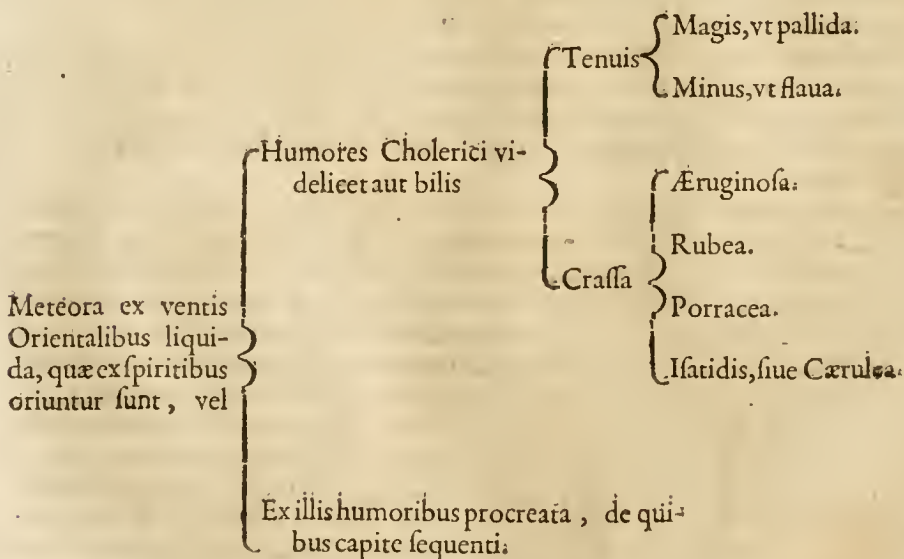 Meteora ex ventis
Orientalibus liqui-
da, quæ ex ſpiritibus
oriuntur ſunt, vel
Humores Cholerici vi-
delicet aut bilis
Tenuis
Magis, vt pallida.
Minus, vt flaua.
Craſſa
Æruginoſa.
Rubea.
Porracea.
Iſatidis, ſiue Cærulea.
Ex illis humoribus procreata, de qui-
bus capite ſequenti.